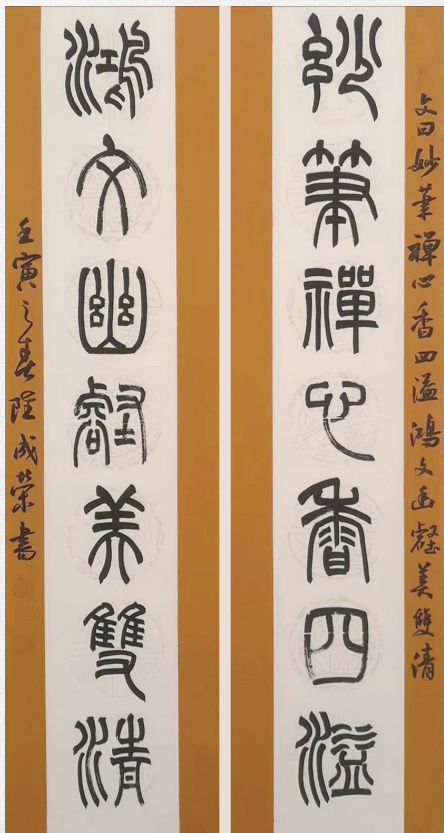 文曰妙筆禪心香四溢鴻文幽壑美雙清
妙筆禪心香四溢
鴻文幽壑美雙清
壬寅之春陸成榮書